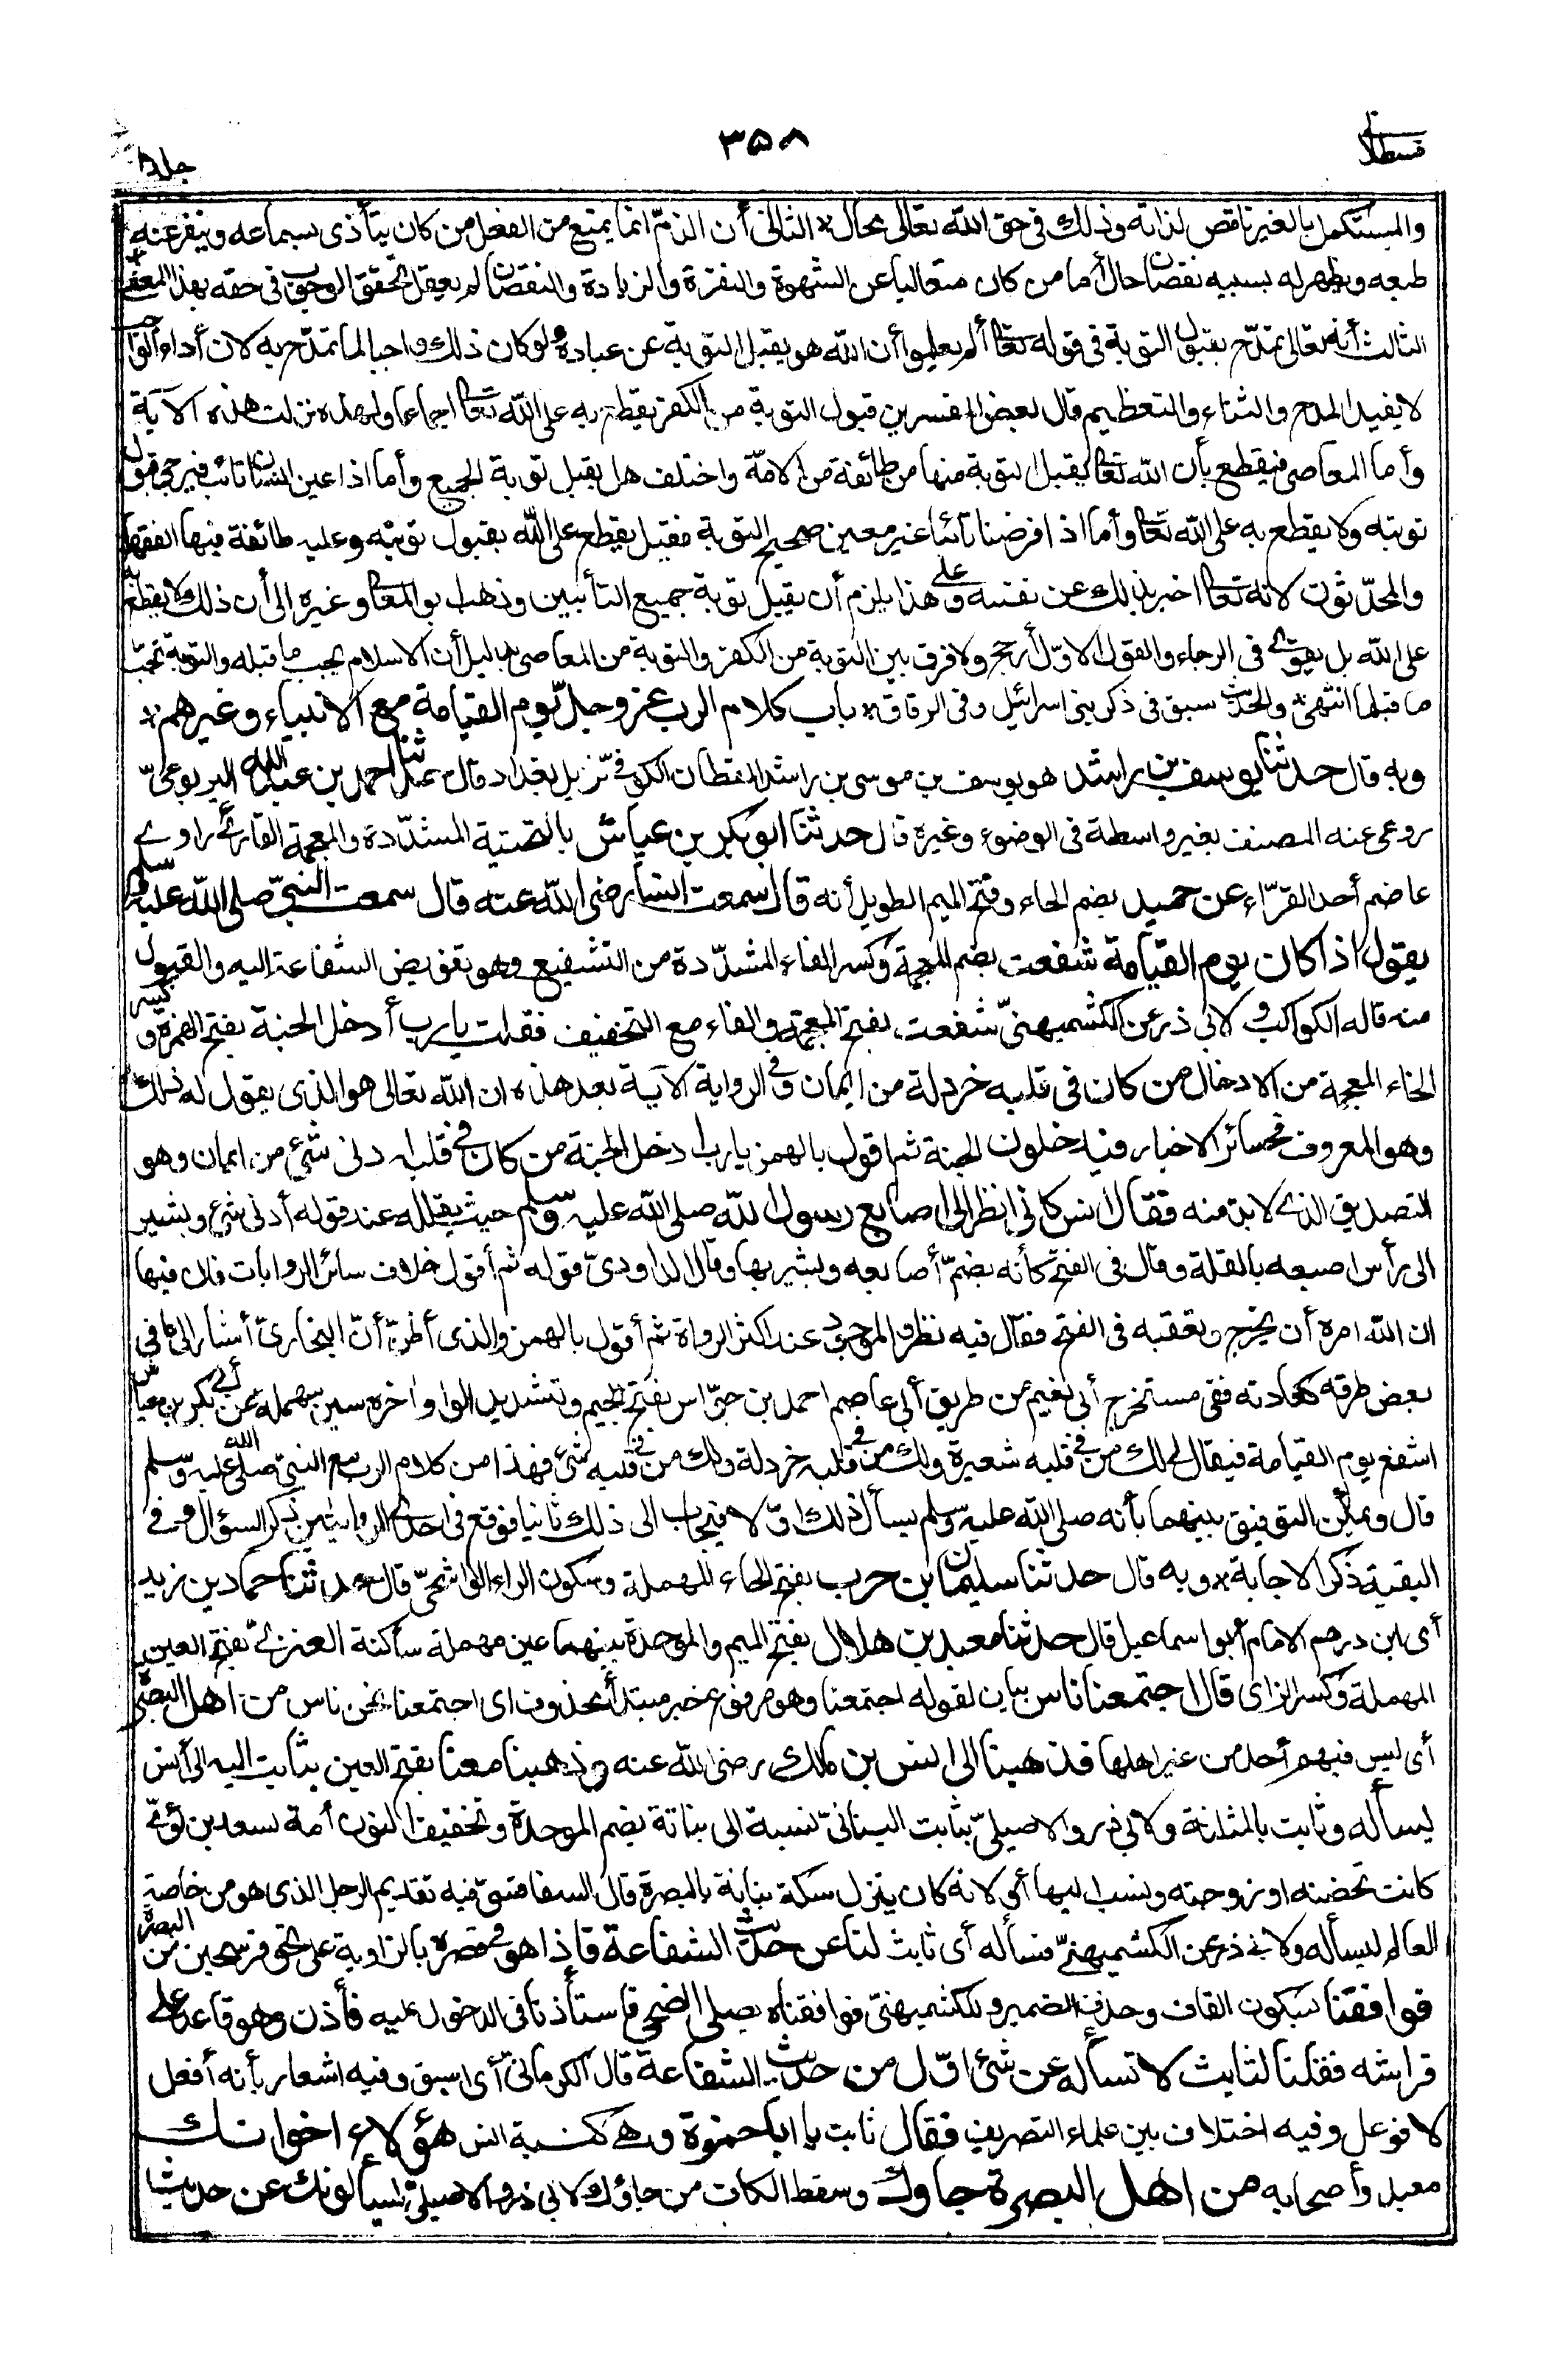 قسطلانی
٣٥٨
جلد
والمستكمل بالغير ناقص لذاته وذلك فى حق الله تعالى محال * الثانى أن الذمّ انما يمتنع من الفعل من كان يتأذى بسماعه وينفر عنه
طبعه ويظهر له بسببه نقصان حال أما من كان متعاليا عن الشهوة والنفرة والزيادة والنقصان لم يعقل تحقق الوجوب فى حقه بهذا المعنى
الثالث أنه تعالى تمدّح بقبول التوبة فى قوله تعا ألم يعلموا أن الله هو يقبل التوبة عن عباده ولو كان ذلك واجبا لما تمدّح به لان أداء الواجب
لا يفيد المدح والثناء والتعظيم قال بعض المفسرين قبول التوبة من الكفر يقطع به على الله تعا اجماعا ولهذه نزلت هذه الآية
وأما المعاصى فيقطع بأن الله تعا يقبل التوبة منها من طائفة من الامّة واختلف هل يقبل توبة الجميع وأما اذا عين انسان تائب فيرجى قبول
توبته ولا يقطع به على الله تعا وأما اذا فرضنا تائبا غير معين صحيح التوبة فقيل يقطع على الله بقبول توبته وعليه طائفة فيها الفقهاء
والمحدّثون لانه تعا اخبر بذلك عن نفسه وعلى هذا يلزم أن يقبل توبة جميع التأئبين وذهب ابو المعالى وغيره الى أن ذلك لا يقطع به
على الله بل يقوى فى الرجاء والقول الاوّل أرجح ولا فرق بين التوبة من الكفر والتوبة من المعاصى بدليل أن الاسلام يجب ما قبله والتوبة تجب
ما قبلها انتهى * والحديث سبق فى ذكر بنى اسرائيل وفى الرقاق * باب كلام الرب عز وجل يوم القيامة مع الانبياء وغيرهم *
وبه قال حدثنا يوسف بن راشد هو يوسف بن موسى بن راشد القطان الكوفى نزيل بغداد قال حدثنا احمد بن عبد الله اليربوعىّ
روى عنه المصنف بغير واسطة فى الوضوء وغيره قال حدثنا ابو بكر بن عياش بالتحتية المشدّدة والمعجمة القارئ راوى
عاصم أحد القرّاء عن حميد بضم الحاء وفتح الميم الطويل أنه قال سمعت انسا رضى الله عنه قال سمعت النبىّ صلى الله عليه وسلم
يقول اذا كان يوم القيامة شفعت بضم المعجمة وكسر الفاء المشدّدة من التشفيع وهو تفويض الشفاعة اليه والقبول
منه قاله الكواكب ولابى ذر عن الكشميهنىّ شفعت بفتح المعجمة والفاء مع التخفيف فقلت يا رب أدخل الجنة بفتح الهمزة وكسر
الخاء المعجمة من الادخال من كان فى قلبه خردلة من ايمان وفى الرواية الآتية بعد هذه ان الله تعالى هو الذى يقول له ذلك
وهو المعروف فى سائر الاخبار فيدخلون الجنة ثم اقول بالهمز يارب ادخل الجنة من كان فى قلبه ادنى شئ من ايمان وهو
التصديق الذى لابدّ منه فقال انس كانى انظر الى اصابع رسول الله صلى الله عليه وسلم حيث يقلله عند قوله أدنى شئ ويشير
الى رأس اصبعه بالقلة وقال فى الفتح كأنه يضمّ أصابعه ويشير بها وقال الداودىّ قوله ثم أقول خلاف سائر الروايات فان فيها
ان الله امره أن يخرج وتعقبه فى الفتح فقال فيه نظر والموجود عند اكثر الرواة ثم أقول بالهمز والذى أظنّ أنّ البخارىّ أشار الى ما فى
بعض طرقه كعادته ففى مستخرج أبى نعيم من طريق أبى عاصم احمد بن جوّاس بفتح الجيم وتشديد الواو واخره سين مهملة عن أبى بكر بن عياش
اشفع يوم القيامة فيقال لى لك من فى قلبه شعيرة ولك من فى قلبه خردلة ولك من فى قلبه شئ فهذا من كلام الرب مع النبىّ صلى الله عليه وسلم
قال ويمكن التوفيق بينهما بأنه صلى الله عليه وسلم يسأل ذلك اوّلا فيجاب الى ذلك ثانيا فوقع فى احدى الروايتين ذكر السؤال وفى
البقية ذكر الاجابة * وبه قال حدثنا سليمان بن حرب بفتح الحاء المهملة وسكون الراء الواشحىّ قال حدثنا حماد بن زيد
أى ابن درهم الامام أبو اسماعيل قال حدثنا معبد بن هلال بفتح الميم والموحدة بينهما عين مهملة ساكنة العنزىّ بفتح العين
المهملة وكسر الزاى قال اجتمعنا ناس بيان لقوله اجتمعنا وهو مرفوع خبر مبتدأ محذوف اى اجتمعنا نحن ناس من اهل البصرة
أى ليس فيهم أحد من غير اهلها فذهبنا الى انس بن مالك رضى الله عنه وذهبنا معنا بفتح العين بثابت اليه الى أنس
ليسأله وثابت بالمثلثة ولابى ذر والاصيلىّ بثابت البنانىّ نسبة الى بنانة بضم الموحدة وتخفيف النون أمة لسعد بن لؤىّ
كانت تحضنه او زوجته ونسب اليها أو لانه كان ينزل سكة بنانة بالبصرة قال السفاقسىّ فيه تقديم الرجل الذى هو من خاصة
العالم ليسأله ولابى ذر عن الكشميهنىّ فسأله أى ثابت لنا عن حديث الشفاعة فاذا هو فى قصره بالزاوية على نحو فرسخين من البصرة
فوافقنا بسكون القاف وحذف الضمير وللكشميهنىّ فوافقناه يصلى الضحى فاستأذنا فى الدخول عليه فأذن وهو قاعد على
فراشه فقلنا لثابت لا تسأله عن شئ اوّل من حديث الشفاعة قال الكرمانىّ أى اسبق وفيه اشعار بأنه أفعل
لا فوعل وفيه اختلاف بين علماء التصريف فقال ثابت يا ابا حمزة وهى كنية انس هؤلاء اخوانك
معبد وأصحابه من اهل البصرة جاوك وسقط الكاف من جاؤك لابى ذر والاصيلىّ يسألونك عن حديث